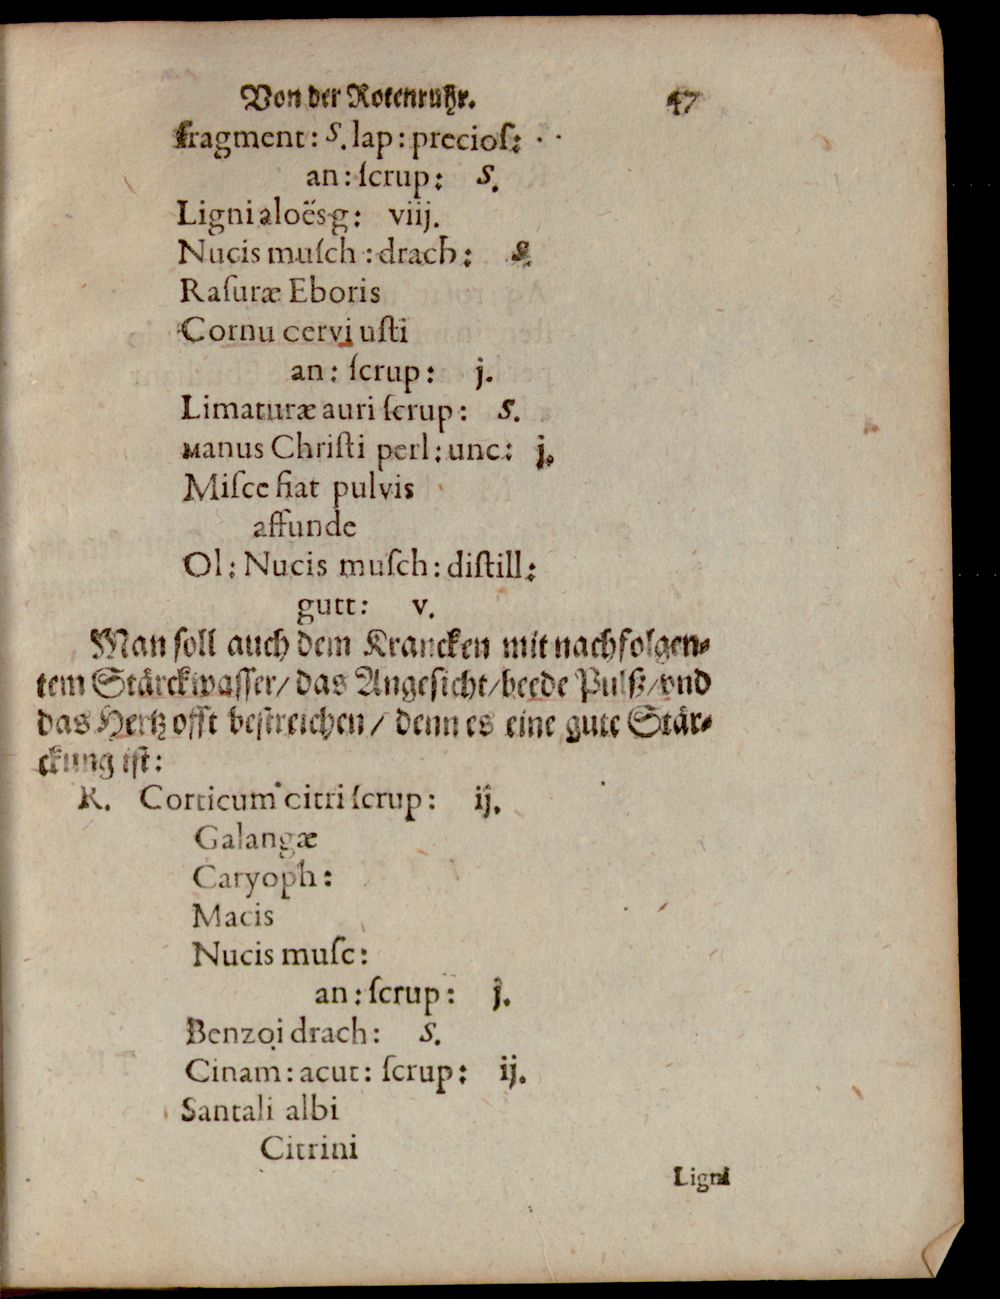 Von der Rotenruhr. 47
fragment: s. lap: precioſ:
an: ſcrup: s.
Ligni aloës g: viij.
Nucis muſch: drach: s.
Raſuræ Eboris
Cornu cervi uſti
an: ſcrup: j.
Limaturæ auri ſcrup: s.
Manus Chriſti perl: unc: j.
Miſce fiat pulvis
affunde
Ol: Nucis muſch: diſtill:
gutt: v.
Man ſoll auch dem Krancken mit nachfolgen⸗
tem Stärckwaſſer/ das Angeſicht/ beede Pulß/ vnd
das Hertz offt beſtreichen/ denn es eine gute Stär⸗
ckung iſt:
R. Corticum citri ſcrup: ij.
Galangæ
Caryoph:
Macis
Nucis muſc:
an: ſcrup: j.
Benzoi drach: s.
Cinam: acut: ſcrup: ij.
Santali albi
Citrini
Ligni